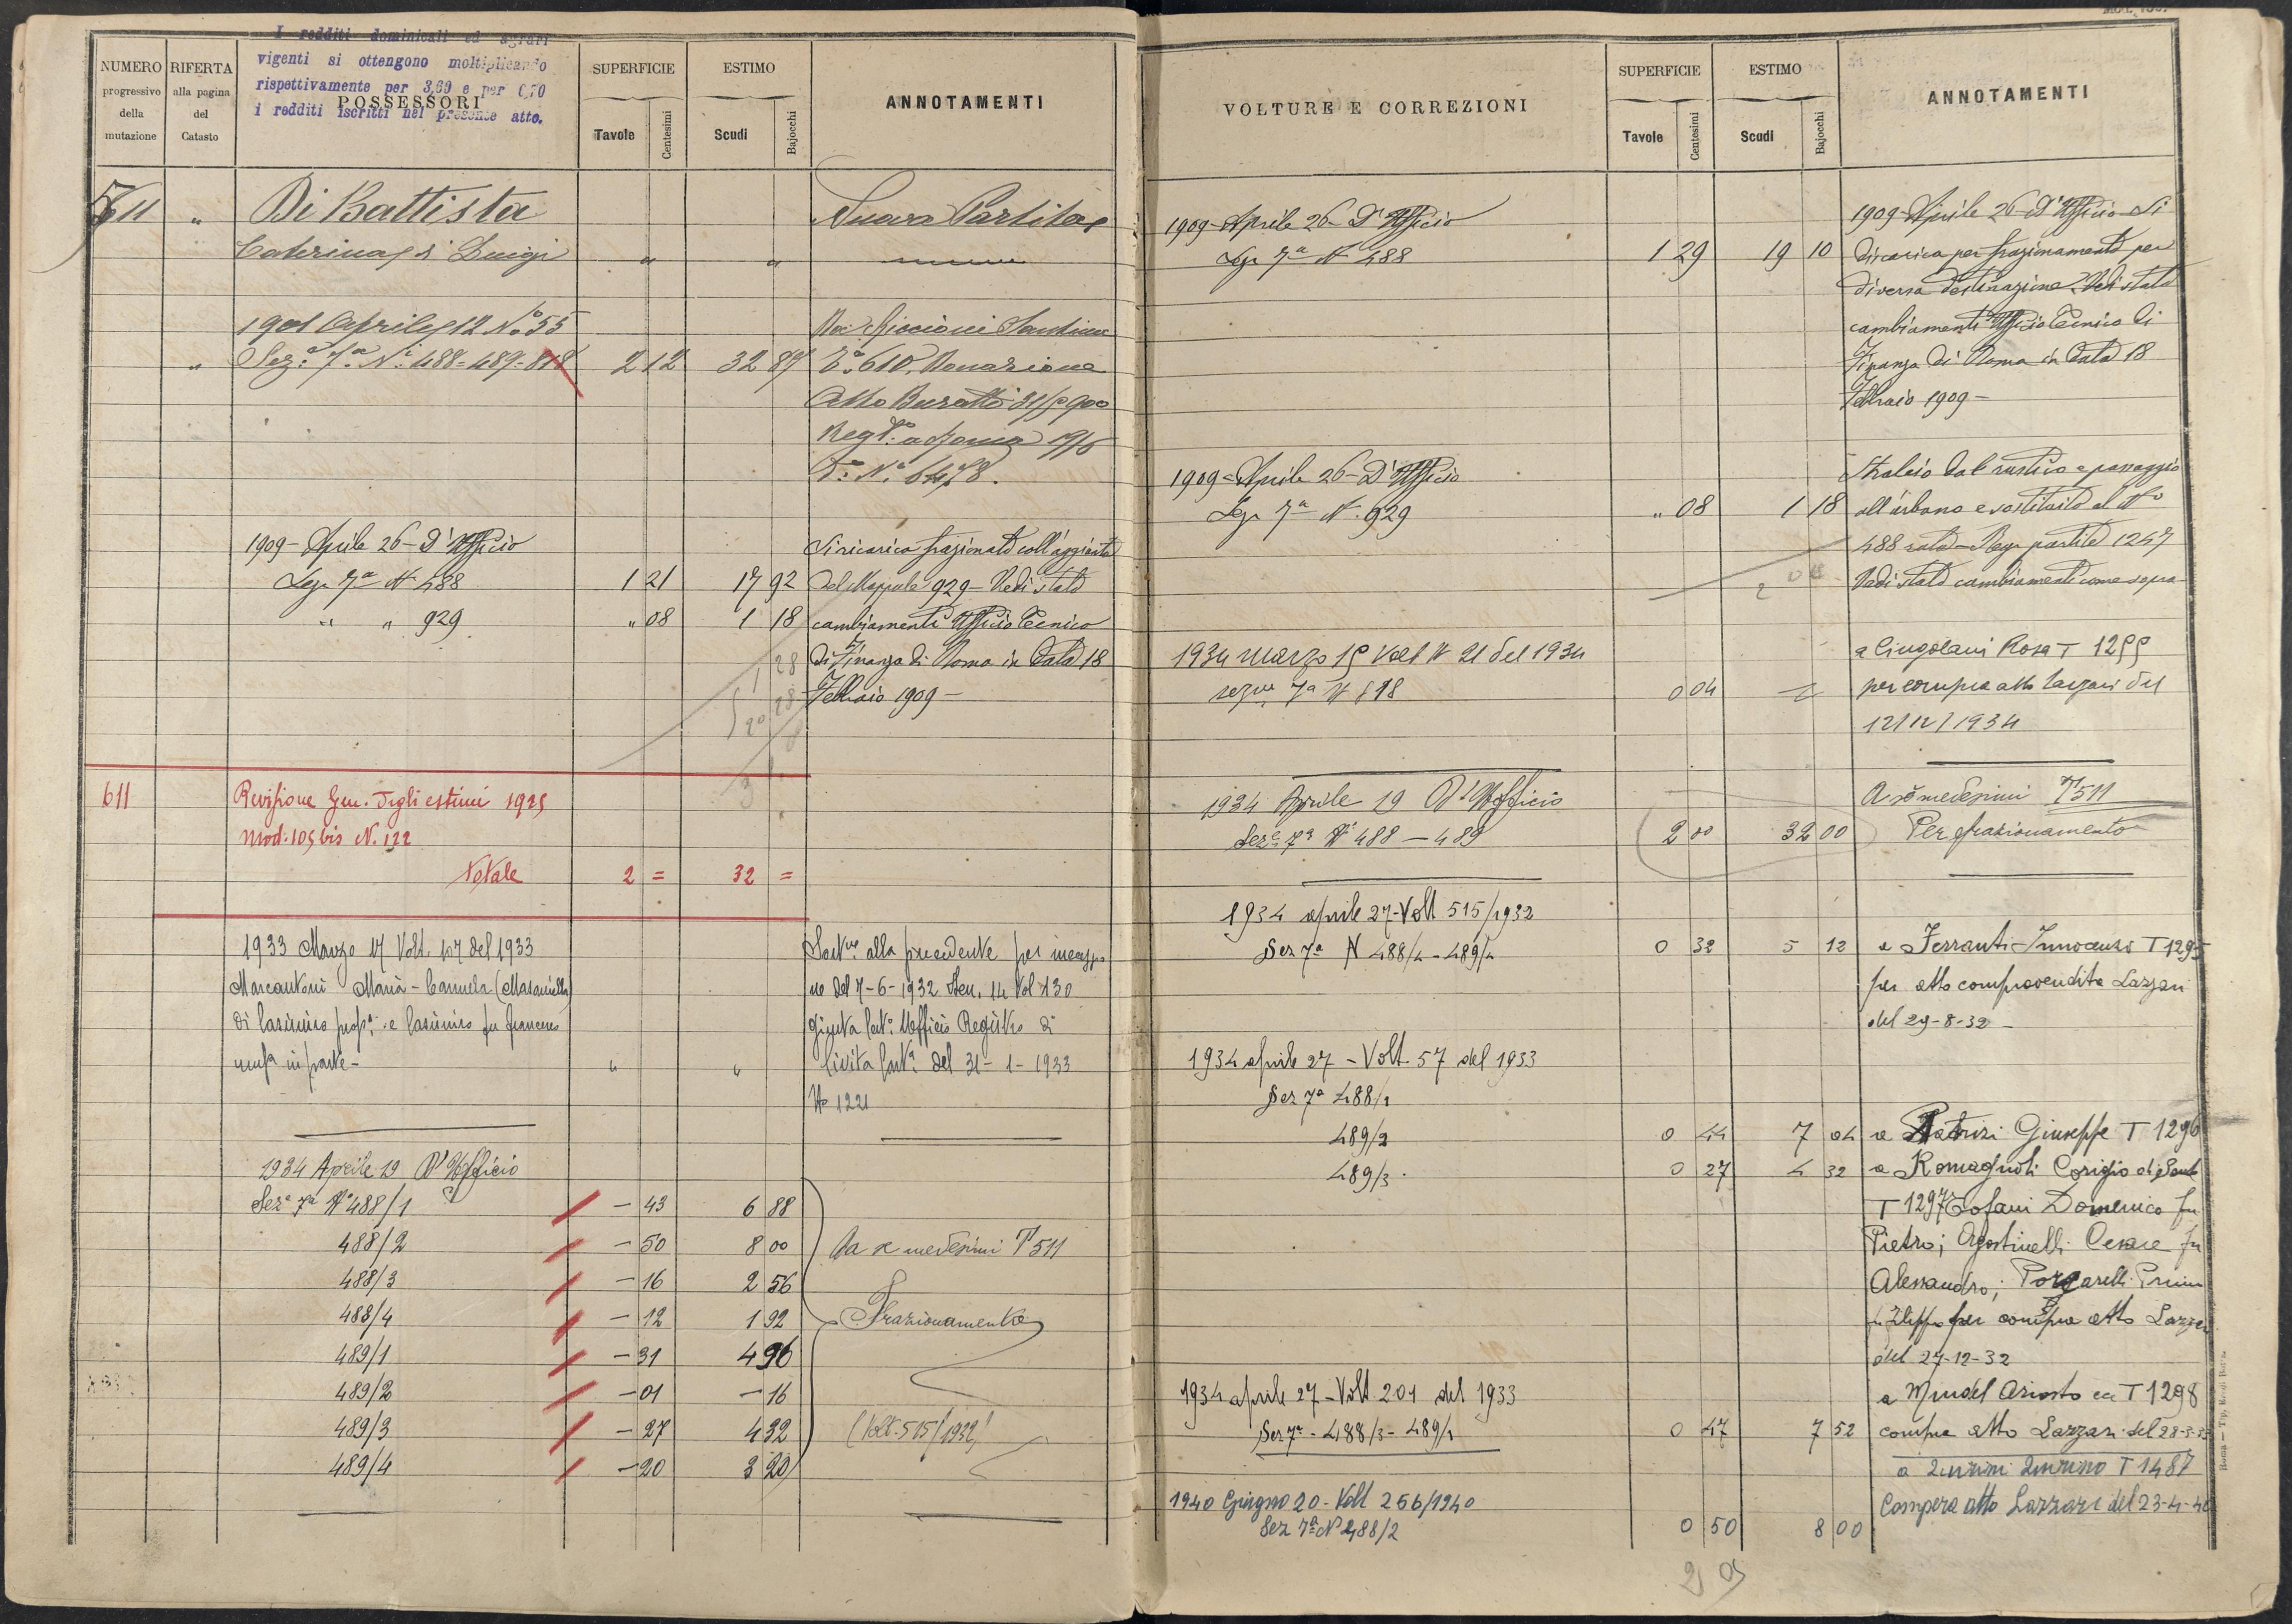 I redditi dominicali ed agrari
vigenti si ottengono moltiplicando
rispettivamente per 3,60 e per 0,70
i redditi iscritti nel presente atto.
NUMERO progressivo della mutazione
RIFERTA alla pagina del Catasto
POSSESSORI
SUPERFICIE
Tavole
Centesimi
ESTIMO
Scudi
Bajocchi
ANNOTAMENTI
511 " Di Battista Nuova Partita
Caterina di Luigi " "
1901 Aprile 12 No 55 Da Santina
" Sez.e 7a Ni 488=489=818 2 12 32 87 To 610, Donazione
Atto Buratti 900
Regto a Roma
No 6478.
1909 - Aprile 26 - D'Ufficio Si ricarica frazionato coll'aggiunta
Sez 7a N 488 1 21 17 92 del Mappale 929 - Vedi stato
" " 929 " 08 1 18 cambiamenti Ufficio Tecnico
di Finanza di Roma in data 18
Febbraio 1909 -
611 Revisione Gen. degli estimi 1925
Mod. 105 bis N. 122
Totale 2 = 32 =
1933 Marzo 17 Volt. 107 del 1933 alla precedente per
Marcantoni Maria - Carmela (Masaniello) ne del 7-6-1932 Den. 14 Vol 130
di Casimiro prop. e Casimiro fu Francesco giunta Ufficio Registro di
in parte - " " Civita Cast. del 31-1-1933
No 1221
1934 Aprile 19 D'Ufficio
Seze 7a No 488/1 - 43 6 88
488/2 - 50 8 00 Da se medesimi T 511
488/3 - 16 2 56
488/4 - 12 1 92 Frazionamento
489/1 - 31 4 96
489/2 - 01 - 16
489/3 - 27 4 32 (Volt. 515/1932)
489/4 - 20 3 20
VOLTURE E CORREZIONI
SUPERFICIE
Tavole
Centesimi
ESTIMO
Scudi
Bajocchi
ANNOTAMENTI
1909 - Aprile 26 - D'Ufficio 1909 - Aprile 26 - D'Ufficio - Si
Sez 7a N 488 1 29 19 10 discarica per frazionamento per
diversa destinazione. Vedi stato
cambiamenti Ufficio Tecnico di
Finanza di Roma in data 18
Febbraio 1909 -
1909 - Aprile 26 - D'Ufficio Stralcio dal rustico e passaggio
Sez 7a N. 929 " 08 1 18 all'urbano e sostituito al No
488 sub - Reg. partite 1247
Vedi stato cambiamenti come sopra
1934 marzo 15 Volt N 21 del 1934 a Cingolani Rosa T 1255
sezne 7a N 818 0 04 per compra atto Lazzari del
12/12/1934
1934 Aprile 19 D'Ufficio A se medesimi T 511
Seze 7a Ni 488 - 489 2 00 32 00 Per frazionamento
1934 aprile 27 - Volt 515/1932
Sez 7a N 488/4 - 489/4 0 32 5 12 a Ferranti Innocenzo T 1295
per atto compravendita Lazzari
del 29-8-32 -
1934 aprile 27 - Volt. 57 del 1933
Sez 7a 488/1
489/2 0 44 7 04 a Patrizi Giuseppe T 1296
489/3 . 0 27 4 32 a Romagnoli
T 1297 Domenico fu
Pietro; Agostinelli Cesare fu
Alessandro;
per compra atto Lazzari
del 27-12-32
1934 aprile 27 - Volt 201 del 1933 a Ariosto T 1298
Sez 7a - 488/3 - 489/1 0 47 7 52 compra atto Lazzari del
a T 1487
1940 Giugno 20 - Volt 256/1940 Compera atto Lazzari del 23-4-40
Sez 7a N 488/2 0 50 8 00